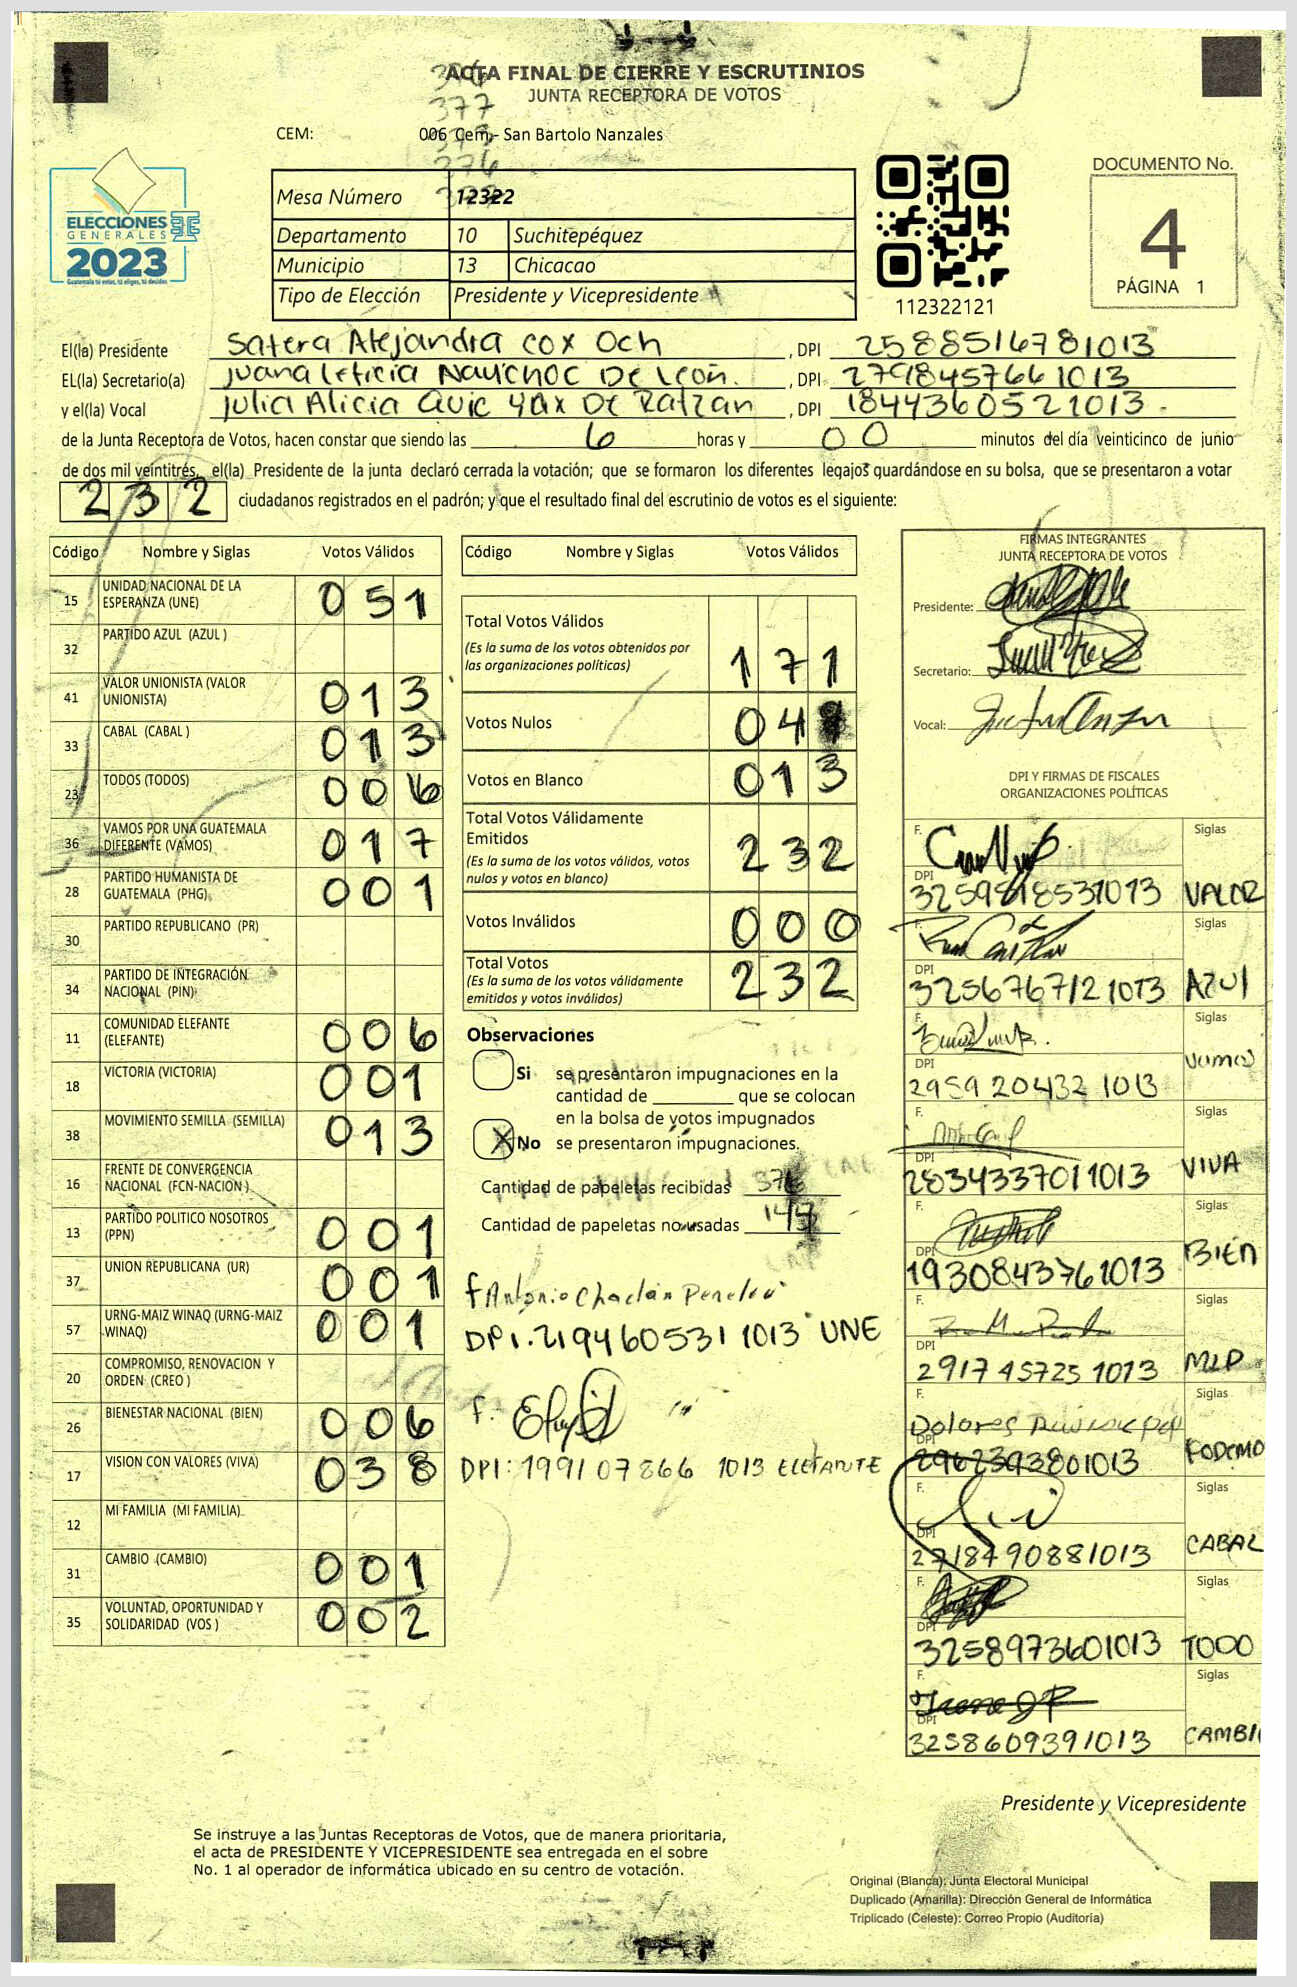 ACTA FINAL DE CIERRE Y ESCRUTINIOS
JUNTA RECEPTORA DE VOTOS
377
376
CEM: 006 Cem,- San Bartolo Nanzales
ELECCIONES
GENERALES
2023
Guatemala tú votas, tú eliges, tú decides
Mesa Número 12322
Departamento 10 Suchitepéquez
Municipio 13 Chicacao
Tipo de Elección Presidente y Vicepresidente
112322121
DOCUMENTO No.
4
PÁGINA 1
El(la) Presidente Satera Alejandra cox Och , DPI 2588516781013
EL(la) Secretario(a) Juana Leticia Nauichoc De León. , DPI 2798457661013
y el(la) Vocal Julia Alicia Quic Yax De Ratzan , DPI 1844360521013.
de la Junta Receptora de Votos, hacen constar que siendo las 6 horas y 00 minutos del día veinticinco de junio
de dos mil veintitrés, el(la) Presidente de la junta declaró cerrada la votación; que se formaron los diferentes legajos guardándose en su bolsa, que se presentaron a votar
232 ciudadanos registrados en el padrón; y que el resultado final del escrutinio de votos es el siguiente:
Código Nombre y Siglas Votos Válidos
15 UNIDAD NACIONAL DE LA ESPERANZA (UNE) 051
32 PARTIDO AZUL (AZUL )
41 VALOR UNIONISTA (VALOR UNIONISTA) 013
33 CABAL (CABAL ) 013
23 TODOS (TODOS) 006
36 VAMOS POR UNA GUATEMALA DIFERENTE (VAMOS) 017
28 PARTIDO HUMANISTA DE GUATEMALA (PHG) 001
30 PARTIDO REPUBLICANO (PR)
34 PARTIDO DE INTEGRACIÓN NACIONAL (PIN)
11 COMUNIDAD ELEFANTE (ELEFANTE) 006
18 VICTORIA (VICTORIA) 001
38 MOVIMIENTO SEMILLA (SEMILLA) 013
16 FRENTE DE CONVERGENCIA NACIONAL (FCN-NACION )
13 PARTIDO POLITICO NOSOTROS (PPN) 001
37 UNION REPUBLICANA (UR) 001
57 URNG-MAIZ WINAQ (URNG-MAIZ WINAQ) 001
20 COMPROMISO, RENOVACION Y ORDEN (CREO )
26 BIENESTAR NACIONAL (BIEN) 006
17 VISION CON VALORES (VIVA) 038
12 MI FAMILIA (MI FAMILIA)
31 CAMBIO (CAMBIO) 001
35 VOLUNTAD, OPORTUNIDAD Y SOLIDARIDAD (VOS ) 002
Código Nombre y Siglas Votos Válidos
Total Votos Válidos
(Es la suma de los votos obtenidos por
las organizaciones políticas) 171
Votos Nulos 04
Votos en Blanco 013
Total Votos Válidamente
Emitidos
(Es la suma de los votos válidos, votos
nulos y votos en blanco) 232
Votos Inválidos 000
Total Votos
(Es la suma de los votos válidamente
emitidos y votos inválidos) 232
Observaciones
Si se presentaron impugnaciones en la
cantidad de ________ que se colocan
en la bolsa de votos impugnados
X No se presentaron impugnaciones.
Cantidad de papeletas recibidas
Cantidad de papeletas no usadas
f Antonio Chaclán
DPI. 2194605311013 UNE
f.
DPI: 199107866 1013 ELEFANTE
FIRMAS INTEGRANTES
JUNTA RECEPTORA DE VOTOS
Presidente:
Secretario:
Vocal:
DPI Y FIRMAS DE FISCALES
ORGANIZACIONES POLÍTICAS
F. Siglas
DPI
3259818531013 VALOR
F. Siglas
DPI
3256767121013 AZUL
F. Siglas
DPI
2959 20432 1013 Vamos
F. Siglas
DPI
2834337011013 VIVA
F. Siglas
DPI
1930843761013 BIEN
F. Siglas
DPI
2917 45725 1013 MLP
F. Siglas
Dolores
DPI
2962393801013 PODEMO
F. Siglas
DPI
2718790881013 CABAL
F. Siglas
DPI
3258973601013 TODO
F. Siglas
DPI
3258609391013 CAMBI
Presidente y Vicepresidente
Se instruye a las Juntas Receptoras de Votos, que de manera prioritaria,
el acta de PRESIDENTE Y VICEPRESIDENTE sea entregada en el sobre
No. 1 al operador de informática ubicado en su centro de votación.
Original (Blanca): Junta Electoral Municipal
Duplicado (Amarilla): Dirección General de Informática
Triplicado (Celeste): Correo Propio (Auditoría)